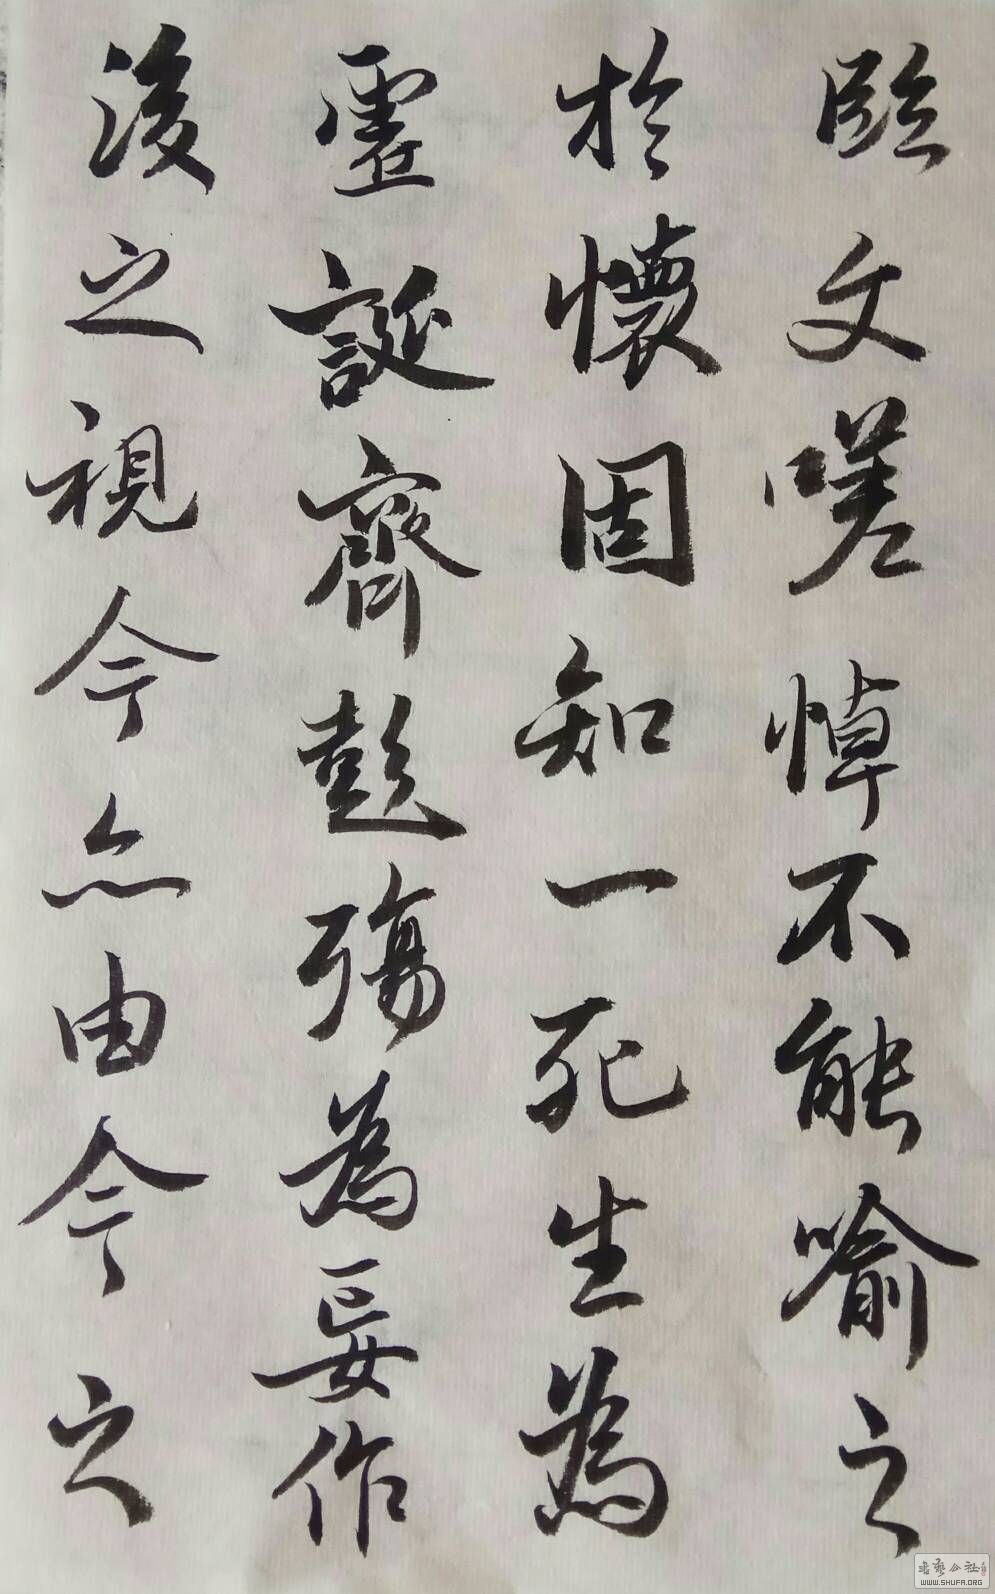 臨文嗟悼不能喻之
於懷固知一死生為
虛誕齊彭殤為妄作
後之視今亦由今之
WWW.SHUFA.ORG